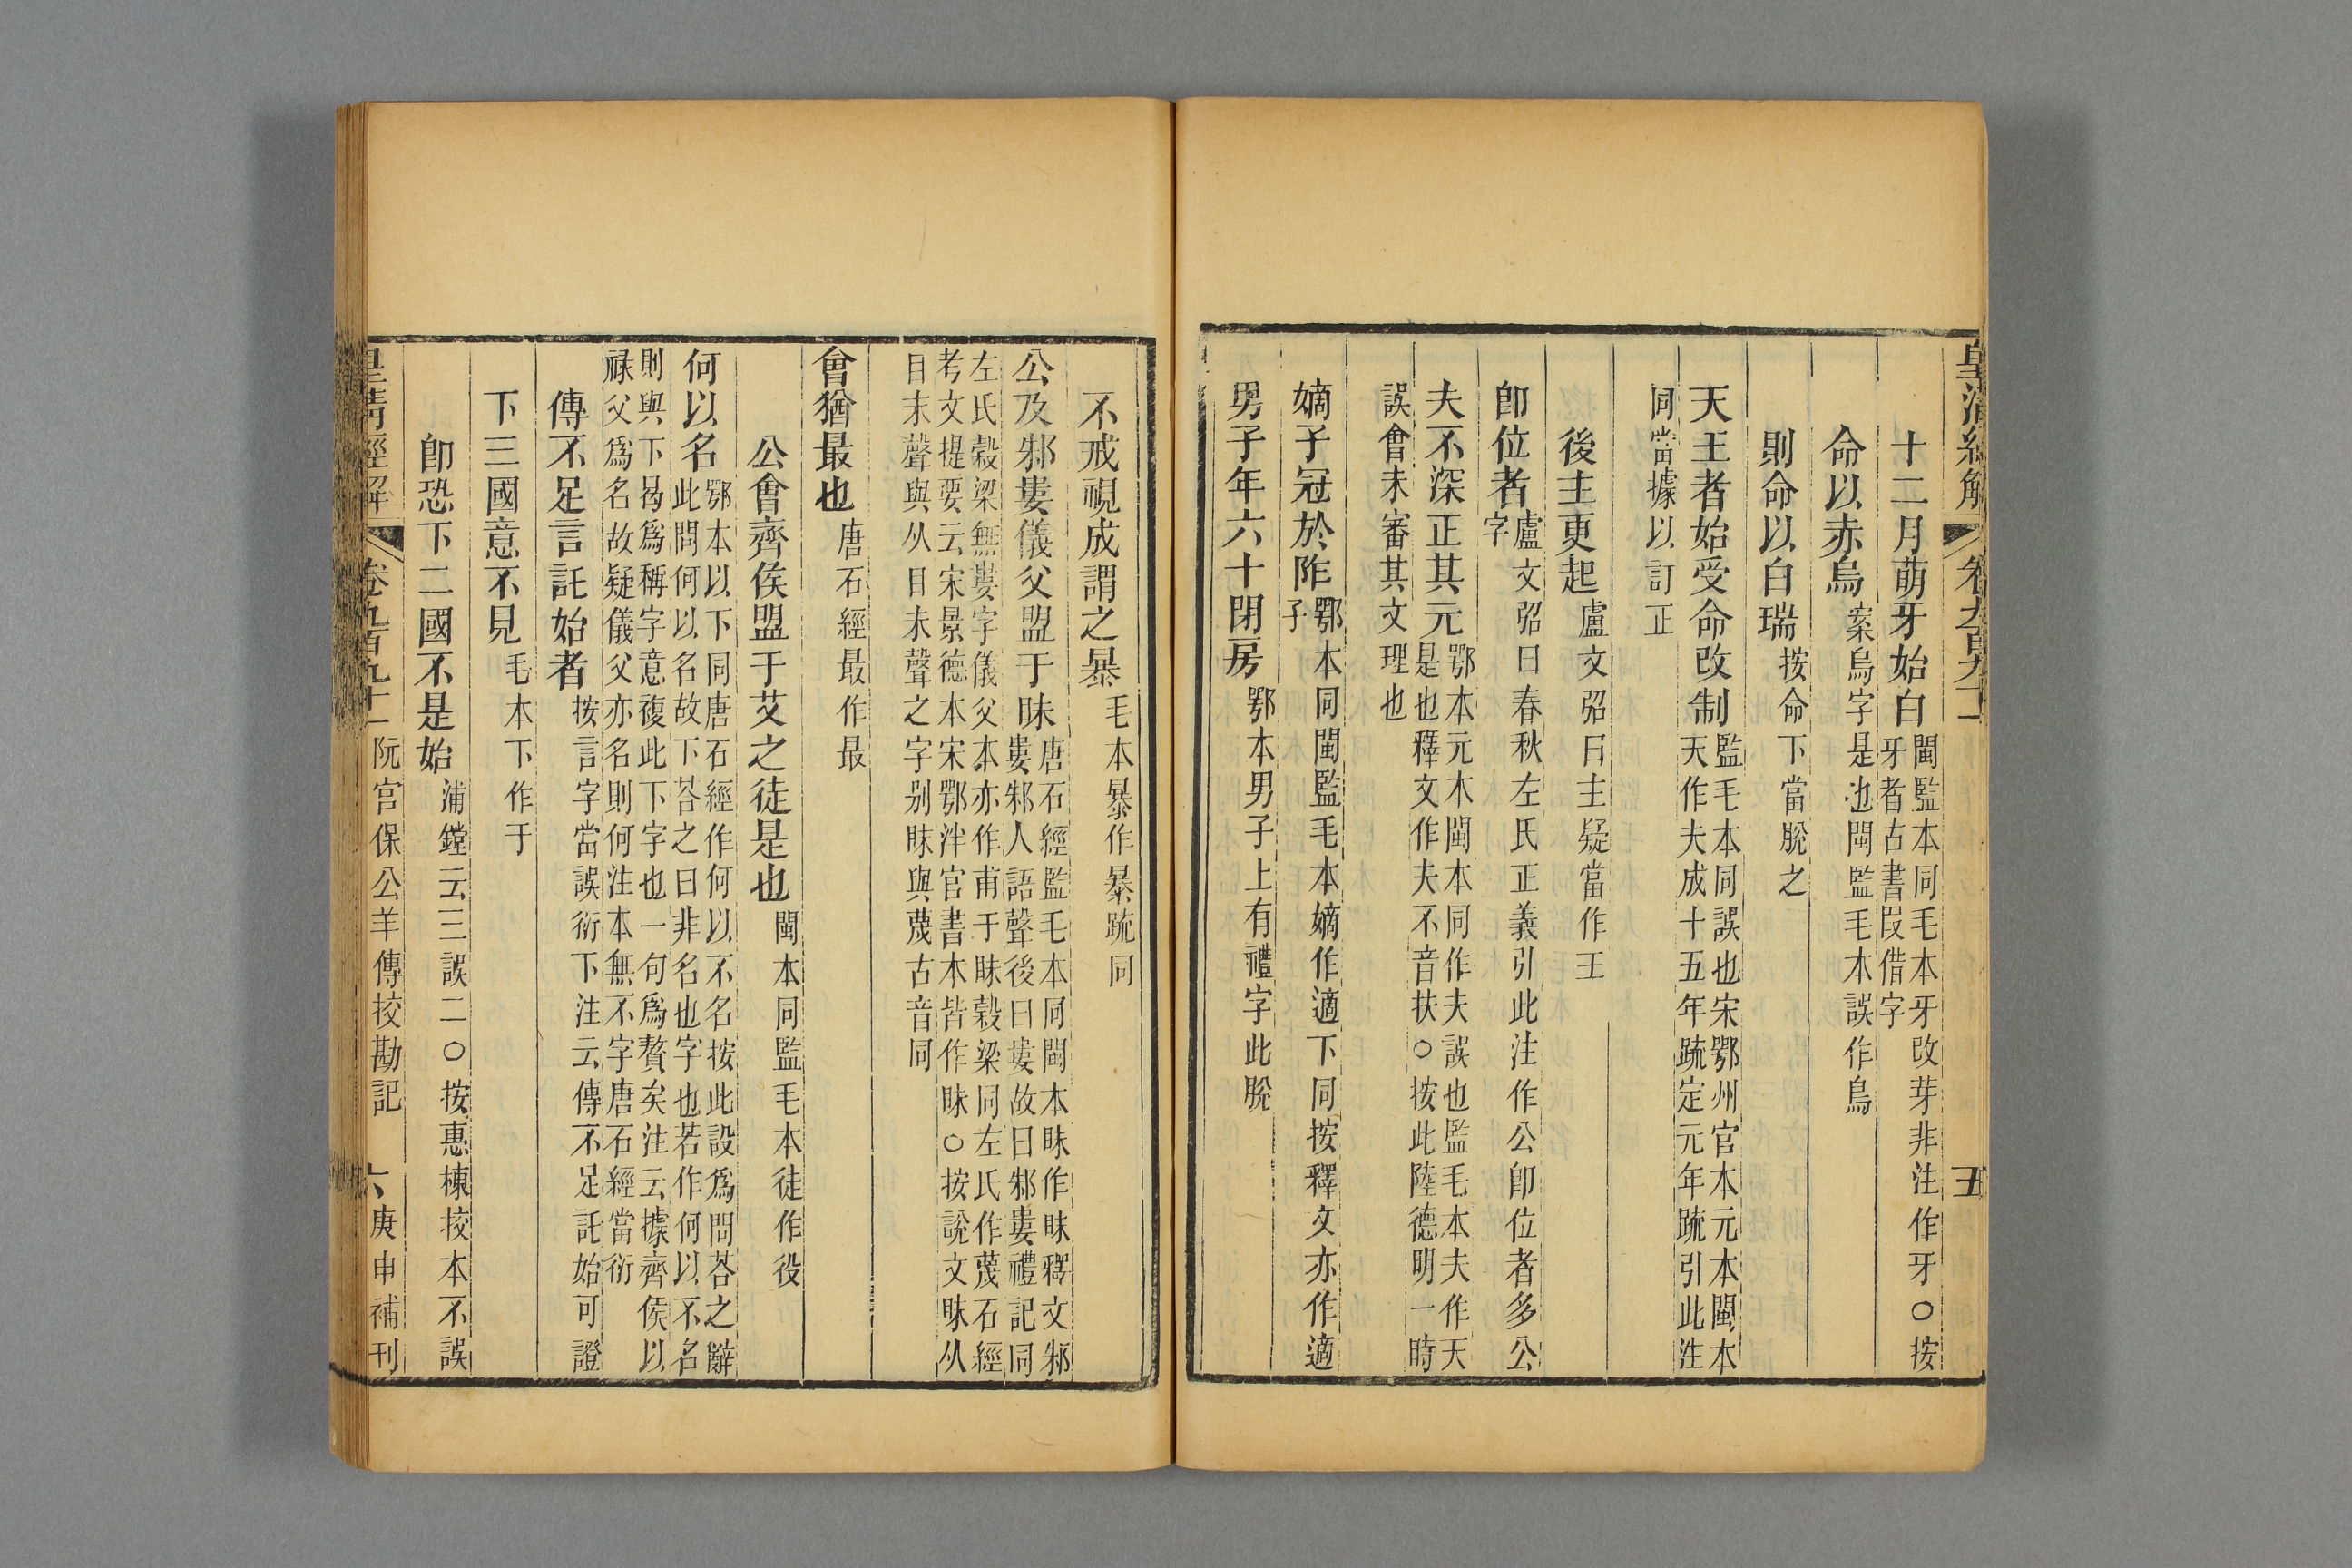 皇清經解 卷九百九十一 五
十二月萌牙始白 閩監本同毛本牙改芽非注作牙○按
牙者古書叚借字
命以赤烏 案烏字是也閩監毛本誤作鳥
則命以白瑞 按命下當脫之
天王者始受命改制 監毛本同誤也宋鄂州官本元本閩本
天作夫成十五年疏定元年疏引此注
同當據以訂正
後主更起 盧文弨曰主疑當作王
卽位者 盧文弨曰春秋左氏正義引此注作公卽位者多公
字
夫不深正其元 鄂本元本閩本同作夫誤也監毛本夫作天
是也釋文作夫不音扶○按此陸德明一時
誤會未審其文理也
嫡子冠於阼 鄂本同閩監毛本嫡作適下同按釋文亦作適
子
男子年六十閉房 鄂本男子上有禮字此脫
不戒視成謂之暴 毛本暴作㬥疏同
公及邾婁儀父盟于眜 唐石經監毛本同閩本眜作昧釋文邾
婁邾人語聲後曰婁故曰邾婁禮記同
左氏穀梁無婁字儀父本亦作甫于眜穀梁同左氏作蔑石經
考文提要云宋景德本宋鄂泮官書本皆作眜○按說文眜从
目末聲與从目未聲之字别眜與蔑古音同
會猶最也 唐石經最作㝡
公會齊侯盟于艾之徒是也 閩本同監毛本徒作役
何以名 鄂本以下同唐石經作何以不名按此設爲問荅之辭
此問何以名故下荅之曰非名也字也若作何以不名
則與下曷爲稱字意複此下字也一句爲贅矣注云據齊侯以
祿父爲名故疑儀父亦名則何注本無不字唐石經當衍
傳不足言託始者 按言字當誤衍下注云傳不足託始可證
下三國意不見 毛本下作于
卽恐下二國不是始 浦鏜云三誤二○按惠棟挍本不誤
皇清經解 卷九百九十一 阮宮保公羊傳挍勘記 六 庚申補刊